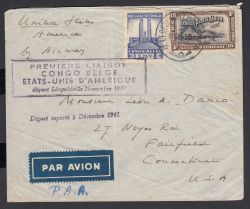 United States
America
by Airway
BELGISCH CONGO
CONGO BELGE
PREMIERE LIAISON
CONGO BELGE
ETATS-UNIS D'AMERIQUE
départ Léopoldville Novembre 1941
Départ reporté à Décembre 1941
Monsieur Leon A,
27 Noyes Rd
Fairfield
Connecticut
U.S.A
PAR AVION
P.A.A.